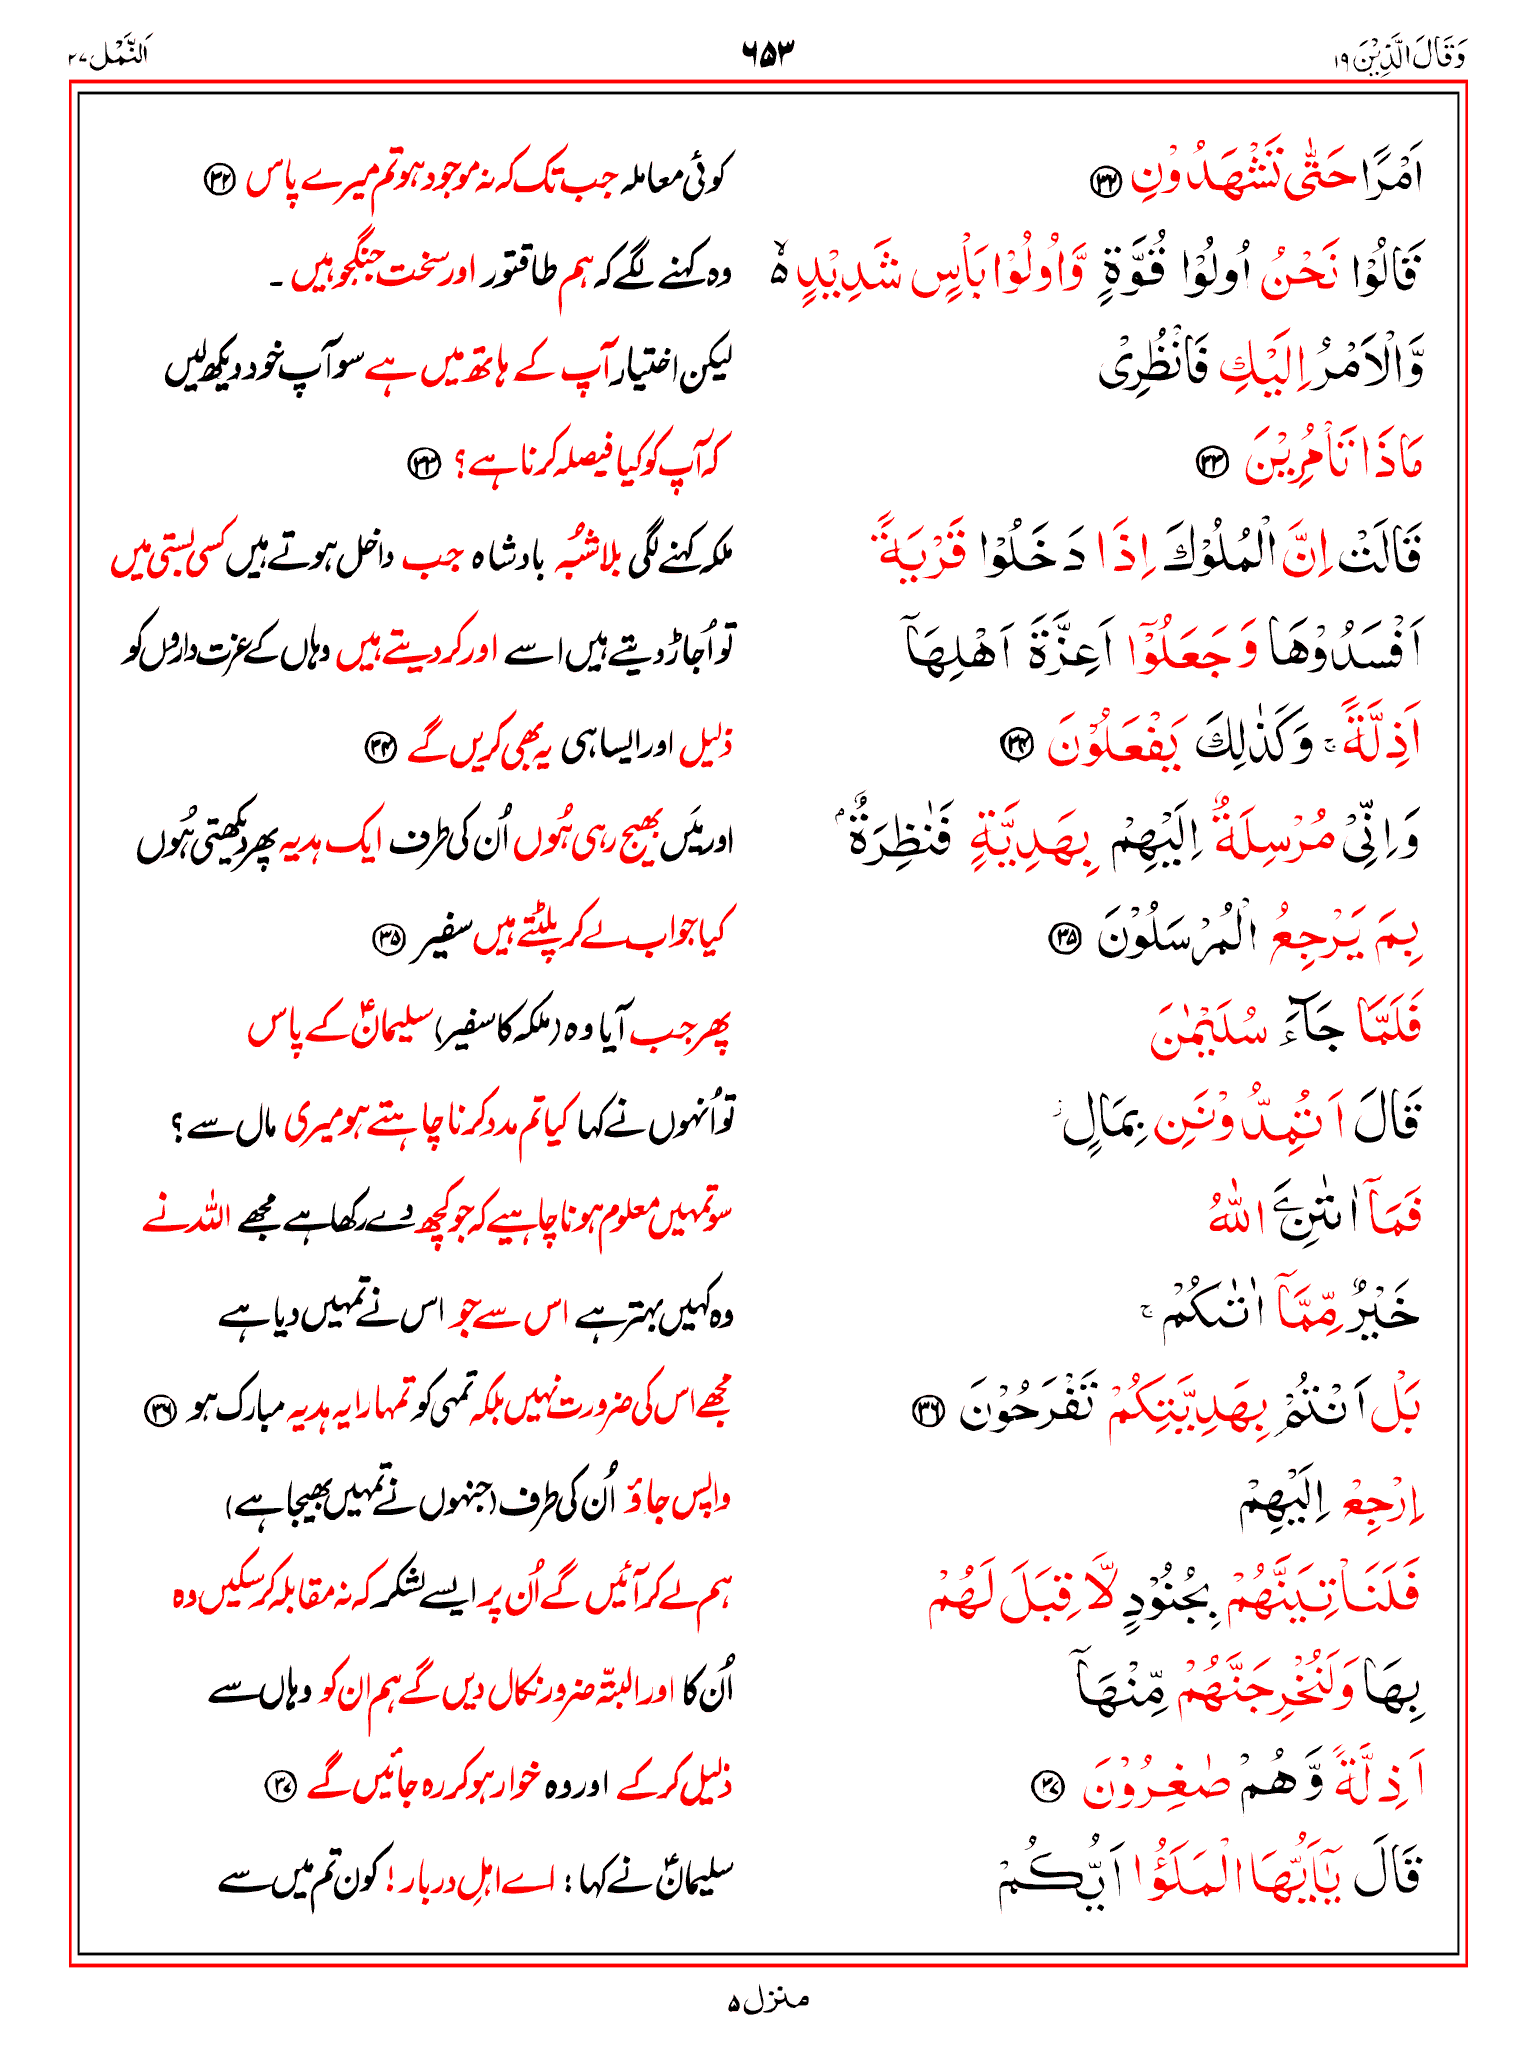 وَقَالَ الَّذِيْنَ ۱۹
۶۵۳
اَلنَّمْل ۲۷
اَمْرًا حَتّٰى تَشْهَدُوْنِ ﴿۳۲﴾
کوئی معاملہ جب تک کہ نہ موجود ہو تم میرے پاس ﴿۳۲﴾
قَالُوْا نَحْنُ اُولُوْا قُوَّةٍ وَّاُولُوْا بَاْسٍ شَدِيْدٍ ۙ۬
وہ کہنے لگے کہ ہم طاقتور اور سخت جنگجو ہیں ۔
وَّالْاَمْرُ اِلَيْكِ فَانْظُرِىْ
لیکن اختیار آپ کے ہاتھ میں ہے سو آپ خود دیکھ لیں
مَاذَا تَاْمُرِيْنَ ﴿۳۳﴾
کہ آپ کو کیا فیصلہ کرنا ہے؟ ﴿۳۳﴾
قَالَتْ اِنَّ الْمُلُوْكَ اِذَا دَخَلُوْا قَرْيَةً
ملکہ کہنے لگی بلاشُبُہ بادشاہ جب داخل ہوتے ہیں کسی بستی میں
اَفْسَدُوْهَا وَجَعَلُوْۤا اَعِزَّةَ اَهْلِهَاۤ
تو اُجاڑ دیتے ہیں اسے اور کر دیتے ہیں وہاں کے عزت داروں کو
اَذِلَّةً ۚ وَكَذٰلِكَ يَفْعَلُوْنَ ﴿۳۴﴾
ذلیل اور ایسا ہی یہ بھی کریں گے ﴿۳۴﴾
وَاِنِّىْ مُرْسِلَةٌ اِلَيْهِمْ بِهَدِيَّةٍ فَنٰظِرَةٌۢ
اور میَں بھیج رہی ہُوں اُن کی طرف ایک ہدیہ پھر دیکھتی ہُوں
بِمَ يَرْجِعُ الْمُرْسَلُوْنَ ﴿۳۵﴾
کیا جواب لے کر پلٹتے ہیں سفیر ﴿۳۵﴾
فَلَمَّا جَآءَ سُلَيْمٰنَ
پھر جب آیا وہ (ملکہ کا سفیر) سلیمانؑ کے پاس
قَالَ اَتُمِدُّوْنَنِ بِمَالٍ ؗ
تو اُنہوں نے کہا کیا تم مدد کرنا چاہتے ہو میری مال سے؟
فَمَاۤ اٰتٰنِۦَ اللّٰهُ
سو تمہیں معلوم ہونا چاہیے کہ جو کچھ دے رکھا ہے مجھے اللہ نے
خَيْرٌ مِّمَّاۤ اٰتٰىكُمْ ۚ
وہ کہیں بہتر ہے اس سے جو اس نے تمہیں دیا ہے
بَلْ اَنْتُمْ بِهَدِيَّتِكُمْ تَفْرَحُوْنَ ﴿۳۶﴾
مجھے اس کی ضرورت نہیں بلکہ تمہی کو تمہارا یہ ہدیہ مبارک ہو ﴿۳۶﴾
اِرْجِعْ اِلَيْهِمْ
واپس جاؤ اُن کی طرف (جنہوں نے تمہیں بھیجا ہے)
فَلَنَاْتِيَنَّهُمْ بِجُنُوْدٍ لَّا قِبَلَ لَهُمْ
ہم لے کر آئیں گے اُن پر ایسے لشکر کہ نہ مقابلہ کر سکیں وہ
بِهَا وَلَنُخْرِجَنَّهُمْ مِّنْهَاۤ
اُن کا اور البتّہ ضرور نکال دیں گے ہم ان کو وہاں سے
اَذِلَّةً وَّهُمْ صٰغِرُوْنَ ﴿۳۷﴾
ذلیل کر کے اور وہ خوار ہو کر رہ جائیں گے ﴿۳۷﴾
قَالَ يٰۤاَيُّهَا الْمَلَؤُا اَيُّكُمْ
سلیمانؑ نے کہا: اے اہلِ دربار! کون تم میں سے
منزل ۵